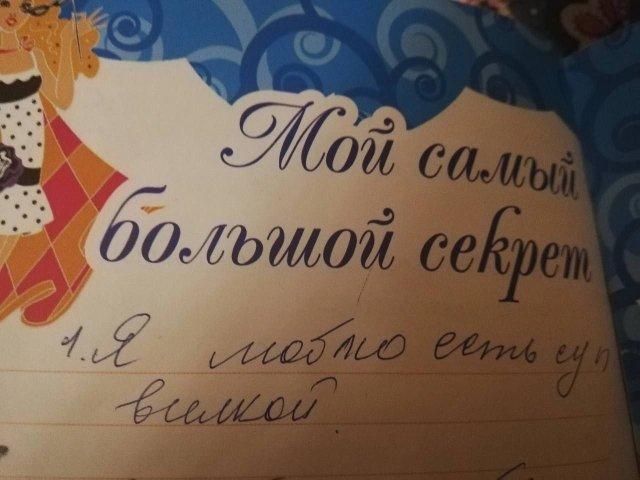 Мой самый
большой секрет
1. Я люблю есть суп
вилкой.